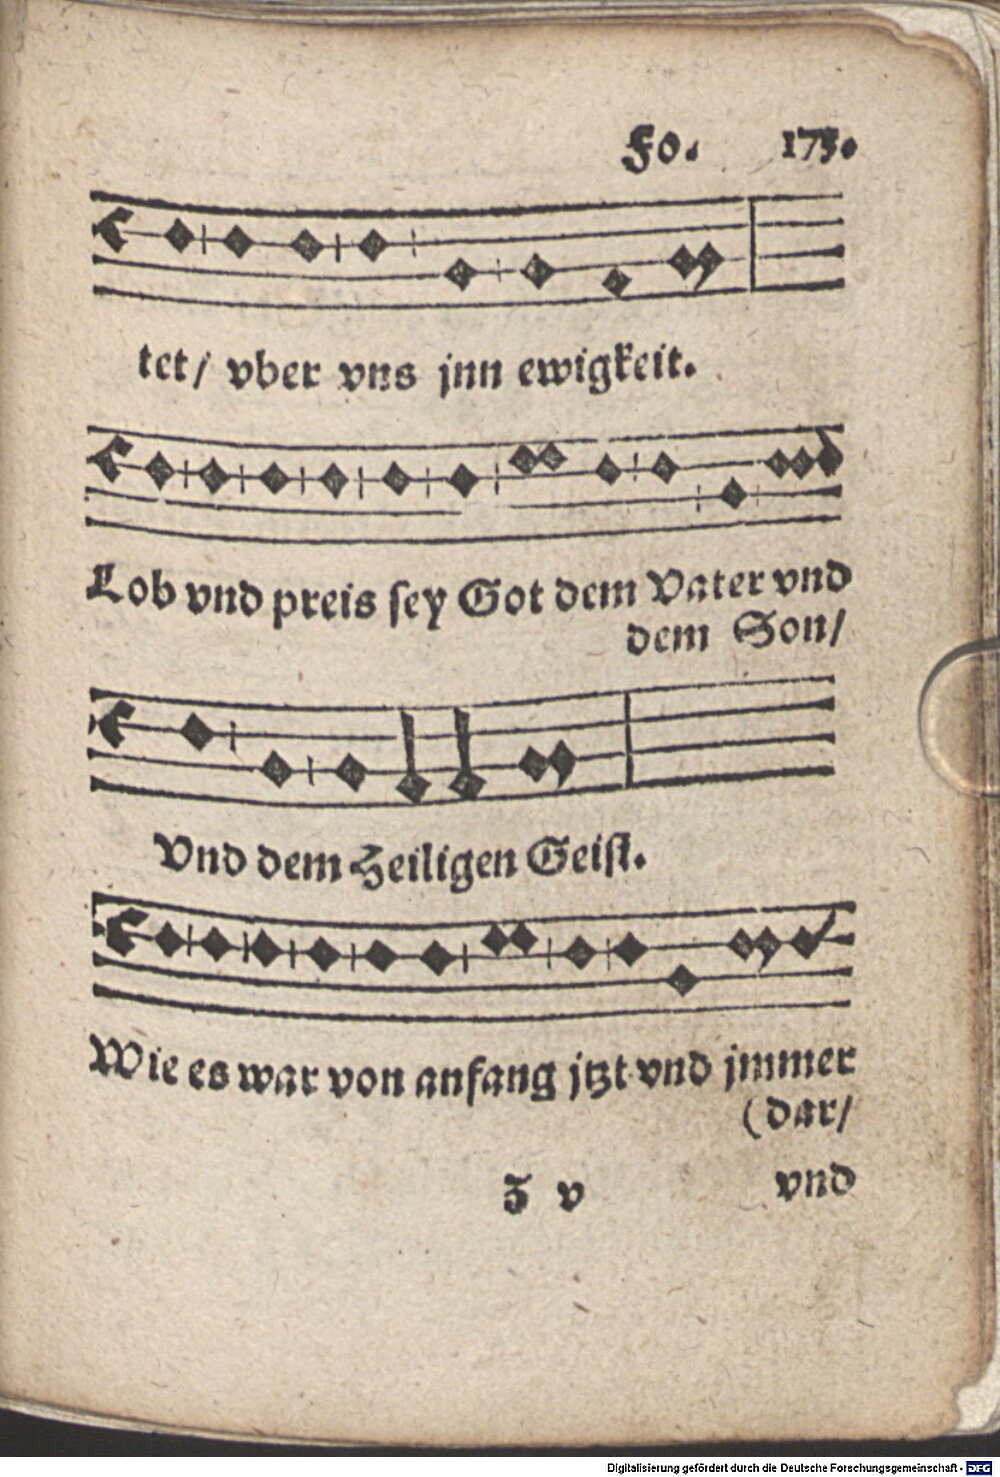 Fo. 173.
tet/ vber vns jnn ewigkeit.
Lob vnd preis sey Got dem Vater vnd
dem Son/
Vnd dem Heiligen Geist.
Wie es war von anfang jtzt vnd jmmer
(dar/
Z v vnd
Digitalisierung gefördert durch die Deutsche Forschungsgemeinschaft - DFG